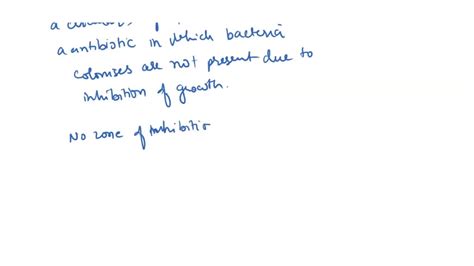 a antibiotic in which bacteria
colonises are not present due to
inhibition of growth.
No zone of inhibition